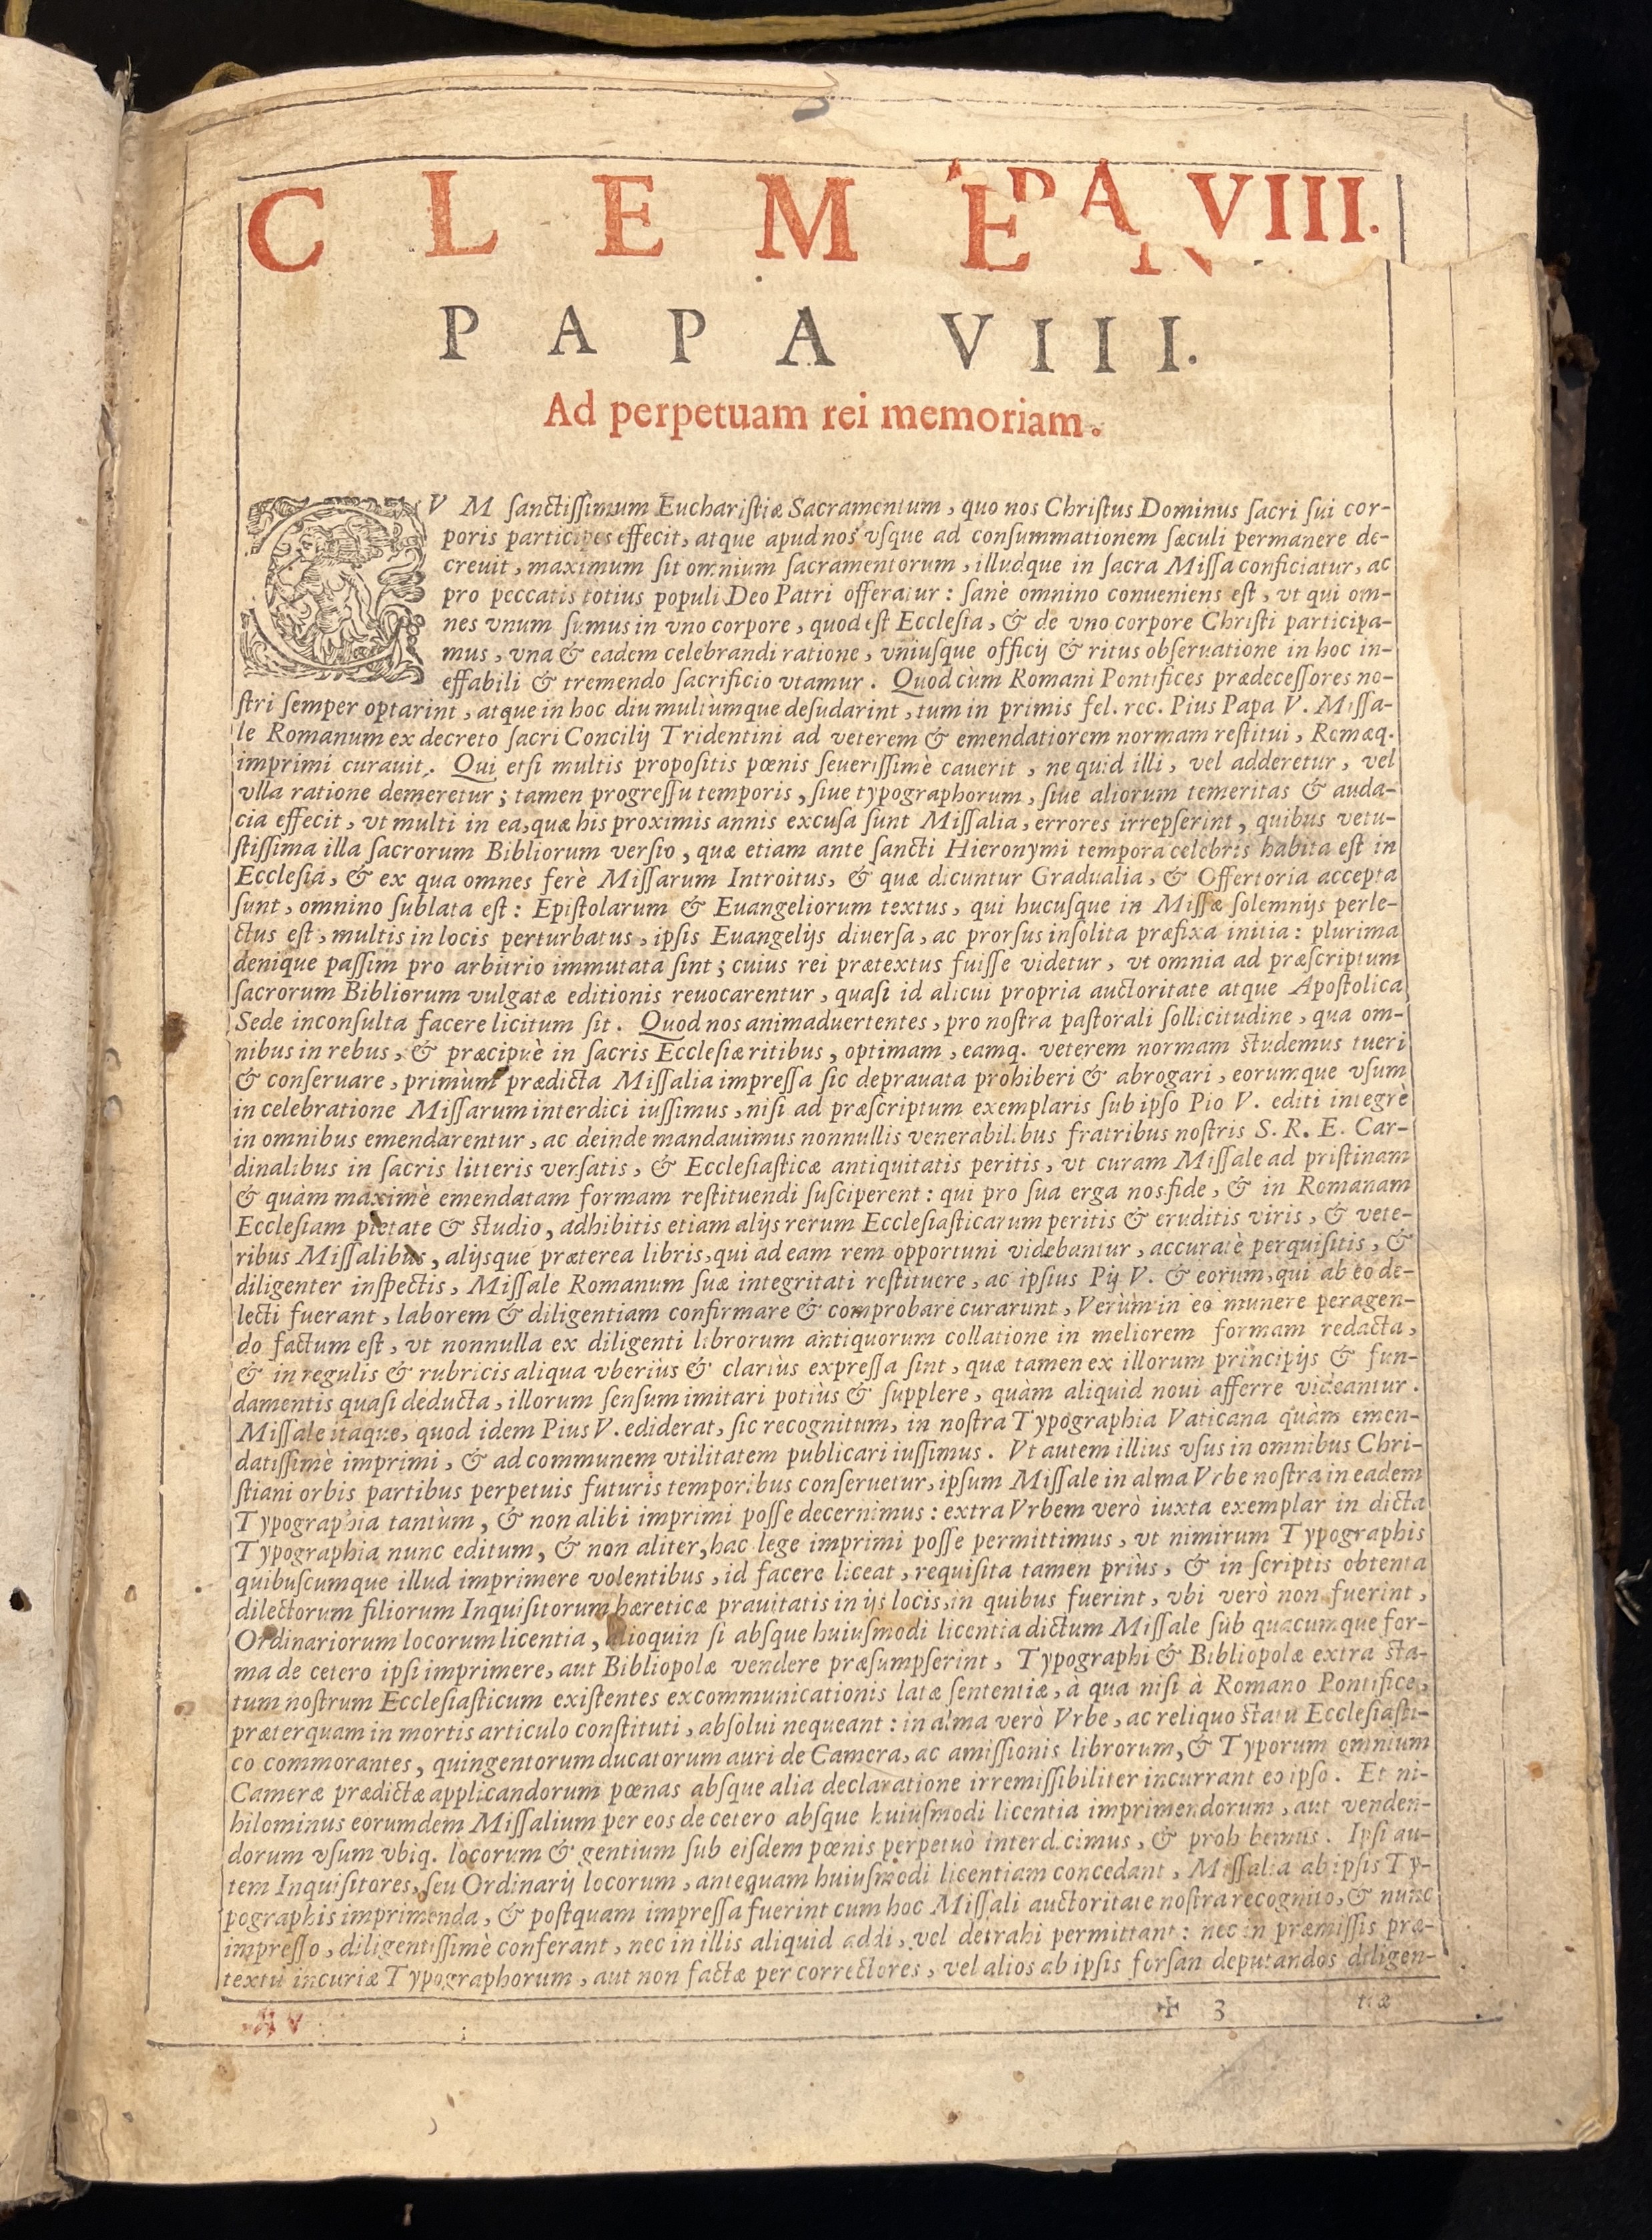 C L E M E
P A VIII.
P A P A V I I I.
Ad perpetuam rei memoriam.
CV M ſanctiſſimum Euchariſtiæ Sacramentum, quo nos Chriſtus Dominus ſacri ſui cor-
poris participes effecit, atque apud nos vſque ad conſummationem ſæculi permanere de-
creuit, maximum ſit omnium ſacramentorum, illudque in ſacra Miſſa conficiatur, ac
pro peccatis totius populi Deo Patri offeratur: ſanè omnino conueniens eſt, vt qui om-
nes vnum ſumus in vno corpore, quod eſt Eccleſia, & de vno corpore Chriſti participa-
mus, vna & eadem celebrandi ratione, vniuſque officij & ritus obſeruatione in hoc in-
effabili & tremendo ſacrificio vtamur. Quod cùm Romani Pontifices prædeceſſores no-
ſtri ſemper optarint, atque in hoc diu multùmque deſudarint, tum in primis fel. rec. Pius Papa V. Miſſa-
le Romanum ex decreto ſacri Concilij Tridentini ad veterem & emendatiorem normam reſtitui, Romæq.
imprimi curauit. Qui etſi multis propoſitis pœnis ſeueriſſimè cauerit, ne quid illi, vel adderetur, vel
vlla ratione demeretur; tamen progreſſu temporis, ſiue typographorum, ſiue aliorum temeritas & auda-
cia effecit, vt multi in ea, quæ his proximis annis excuſa ſunt Miſſalia, errores irrepſerint, quibus vetu-
ſtiſſima illa ſacrorum Bibliorum verſio, quæ etiam ante ſancti Hieronymi tempora celebris habita eſt in
Eccleſiá, & ex qua omnes ferè Miſſarum Introitus, & quæ dicuntur Gradualia, & Offertoria accepta
ſunt, omnino ſublata eſt: Epiſtolarum & Euangeliorum textus, qui hucuſque in Miſſæ ſolemnijs perle-
ctus eſt, multis in locis perturbatus, ipſis Euangelijs diuerſa, ac prorſus inſolita præfixa initia: plurima
denique paſſim pro arbitrio immutata ſint; cuius rei prætextus fuiſſe videtur, vt omnia ad præſcriptum
ſacrorum Bibliorum vulgatæ editionis reuocarentur, quaſi id alicui propria auctoritate atque Apoſtolica
Sede inconſulta facere licitum ſit. Quod nos animaduertentes, pro noſtra paſtorali ſollicitudine, qua om-
nibus in rebus, & præcipuè in ſacris Eccleſiæ ritibus, optimam, eamq. veterem normam ſtudemus tueri
& conſeruare, primùm prædicta Miſſalia impreſſa ſic deprauata prohiberi & abrogari, eorumque vſum
in celebratione Miſſarum interdici iuſſimus, niſi ad præſcriptum exemplaris ſub ipſo Pio V. editi integrè
in omnibus emendarentur, ac deinde mandauimus nonnullis venerabilibus fratribus noſtris S. R. E. Car-
dinalibus in ſacris litteris verſatis, & Eccleſiaſticæ antiquitatis peritis, vt curam Miſſale ad priſtinam
& quàm maximè emendatam formam reſtituendi ſuſciperent: qui pro ſua erga nos fide, & in Romanam
Eccleſiam pietate & ſtudio, adhibitis etiam alijs rerum Eccleſiaſticarum peritis & eruditis viris, & vete-
ribus Miſſalibus, alijsque præterea libris, qui ad eam rem opportuni videbantur, accuratè perquiſitis, &
diligenter inſpectis, Miſſale Romanum ſuæ integritati reſtituere, ac ipſius Pij V. & eorum, qui ab eo de-
lecti fuerant, laborem & diligentiam confirmare & comprobare curarunt, Verùm in eo munere peragen-
do factum eſt, vt nonnulla ex diligenti librorum antiquorum collatione in meliorem formam redacta,
& in regulis & rubricis aliqua vberiùs & clariùs expreſſa ſint, quæ tamen ex illorum principijs & fun-
damentis quaſi deducta, illorum ſenſum imitari potiùs & ſupplere, quàm aliquid noui afferre videantur.
Miſſale itaque, quod idem Pius V. ediderat, ſic recognitum, in noſtra Typographia Vaticana quàm emen-
datiſſimè imprimi, & ad communem vtilitatem publicari iuſſimus. Vt autem illius vſus in omnibus Chri-
ſtiani orbis partibus perpetuis futuris temporibus conſeruetur, ipſum Miſſale in alma Vrbe noſtra in eadem
Typographia tantùm, & non alibi imprimi poſſe decernimus: extra Vrbem verò iuxta exemplar in dicta
Typographia nunc editum, & non aliter, hac lege imprimi poſſe permittimus, vt nimirum Typographis
quibuſcumque illud imprimere volentibus, id facere liceat, requiſita tamen priùs, & in ſcriptis obtenta
dilectorum filiorum Inquiſitorum hæreticæ prauitatis in ijs locis, in quibus fuerint, vbi verò non fuerint,
Ordinariorum locorum licentia, alioquin ſi abſque huiuſmodi licentia dictum Miſſale ſub quacumque for-
ma de cetero ipſi imprimere, aut Bibliopolæ vendere præſumpſerint, Typographi & Bibliopolæ extra ſta-
tum noſtrum Eccleſiaſticum exiſtentes excommunicationis latæ ſententiæ, à qua niſi à Romano Pontifice,
præterquam in mortis articulo conſtituti, abſolui nequeant: in alma verò Vrbe, ac reliquo ſtatu Eccleſiaſti-
co commorantes, quingentorum ducatorum auri de Camera, ac amiſſionis librorum, & Typorum omnium
Cameræ prædictæ applicandorum pœnas abſque alia declaratione irremiſſibiliter incurrant eo ipſo. Et ni-
hilominus eorumdem Miſſalium per eos de cetero abſque huiuſmodi licentia imprimendorum, aut venden-
dorum vſum vbiq. locorum & gentium ſub eiſdem pœnis perpetuò interdicimus, & prohibemus. Ipſi au-
tem Inquiſitores, ſeu Ordinarij locorum, antequam huiuſmodi licentiam concedant, Miſſalia ab ipſis Ty-
pographis imprimenda, & poſtquam impreſſa fuerint cum hoc Miſſali auctoritate noſtra recognito, & nunc
impreſſo, diligentiſſimè conferant, nec in illis aliquid addi, vel detrahi permittant: nec in præmiſſis præ-
textu incuriæ Typographorum, aut non factæ per correctores, vel alios ab ipſis forſan deputandos diligen-
✠ 3 tiæ